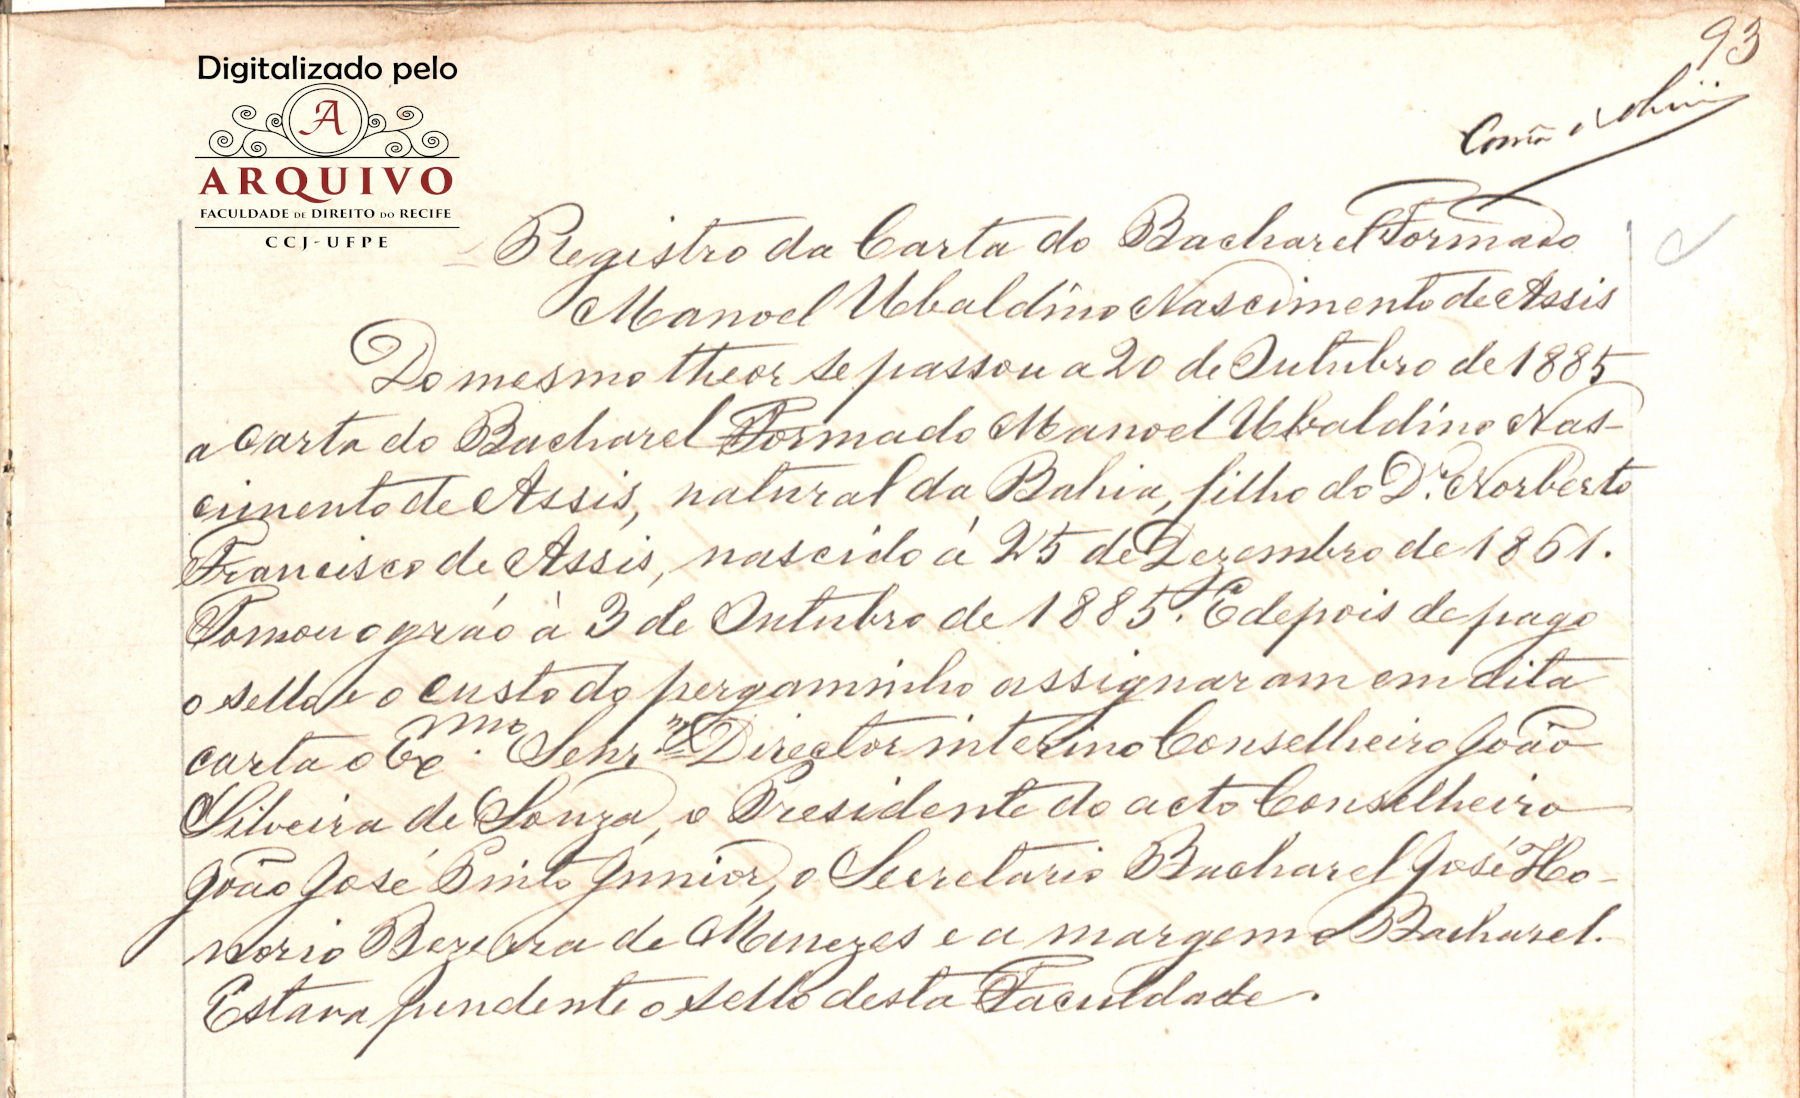 93
Digitalizado pelo
A
ARQUIVO
FACULDADE DE DIREITO DO RECIFE
CCJ-UFPE
Registro da Carta do Bacharel Formado
Manoel Ubaldino Nascimento de Assis
Do mesmo theor se passou a 20 de Outubro de 1885
a carta do Bacharel Formado Manoel Ubaldino Nas-
cimento de Assis, natural da Bahia, filho do Dr. Norberto
Francisco de Assis, nascido á 25 de Dezembro de 1861.
Tomou o gráo à 3 de Outubro de 1885. E depois de pago
o sello e o custo do pergaminho assignaram em dita
carta o Exmo. Senr. Director interino Conselheiro João
Silveira de Souza, o Presidente do acto Conselheiro
João José Pinto Junior, o Secretario Bacharel José Ho-
norio Bezerra de Menezes e a margem o Bacharel.
Estava pendente o sello desta Faculdade.